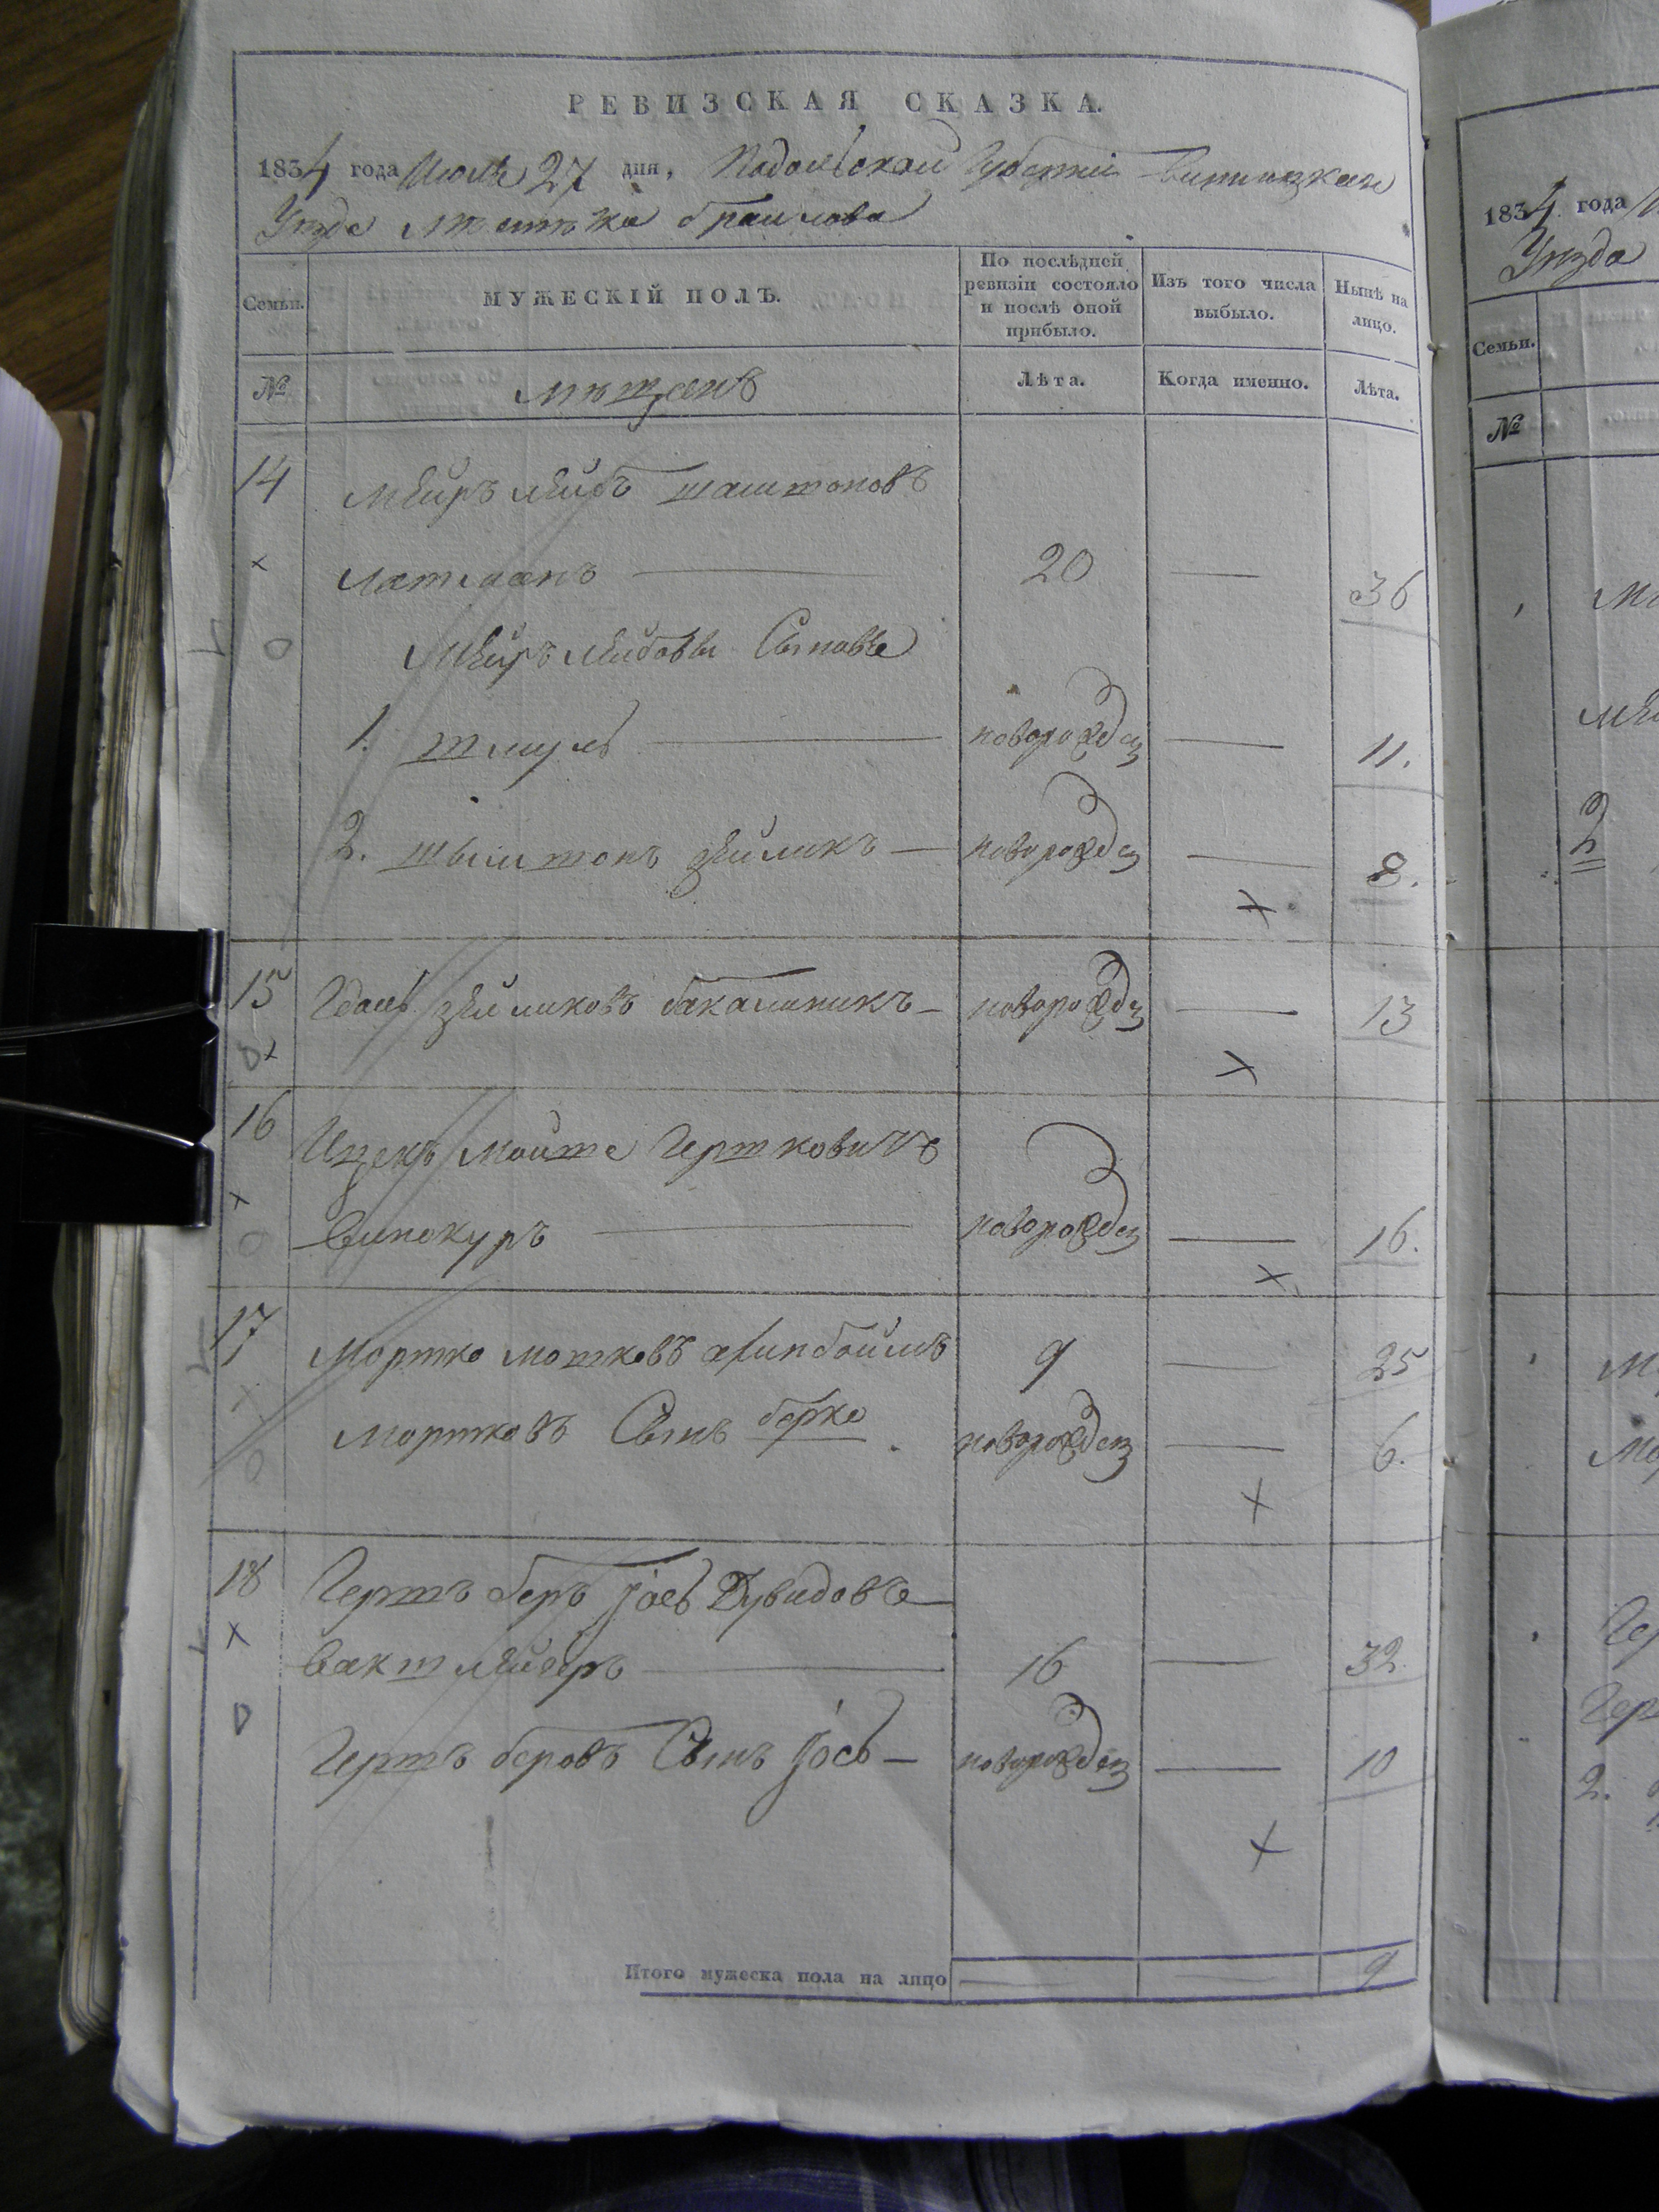 РЕВИЗСКАЯ СКАЗКА.
1834 года Июля 27 дня, Подольской Губерніи Винницкаго
Уѣзда мѣстѣчка браилова
Семьи.
МУЖЕСКІЙ ПОЛЪ.
По послѣдней ревизіи состояло и послѣ оной прибыло.
Изъ того числа выбыло.
Нынѣ на лицо.
№
мѣщанъ
Лѣта.
Когда именно.
Лѣта.
14 Мейръ лейбъ
20 — 36
Мейръ лейбовы Сыновье
1. шмуль — новорожд — 11.
2. зейликъ — новорожд — 8.
15 зейликовъ бакалиникъ — новорожд — 13
16 Ицекъ Мойше Гершковичъ
Винокуръ — новорожд — 16.
17 Мортко мошковъ 9 — 25
Мортковъ Сынъ берко новорожден — 6.
18 Гершъ беръ Іосъ Дувидовъ
вакшлейеръ — 16 — 32
Гершъ беровъ Сынъ Іось — новорожден — 10
Итого мужеска пола на лицо — 9
1834 года
Уѣзда
Семьи.
№
2
2.